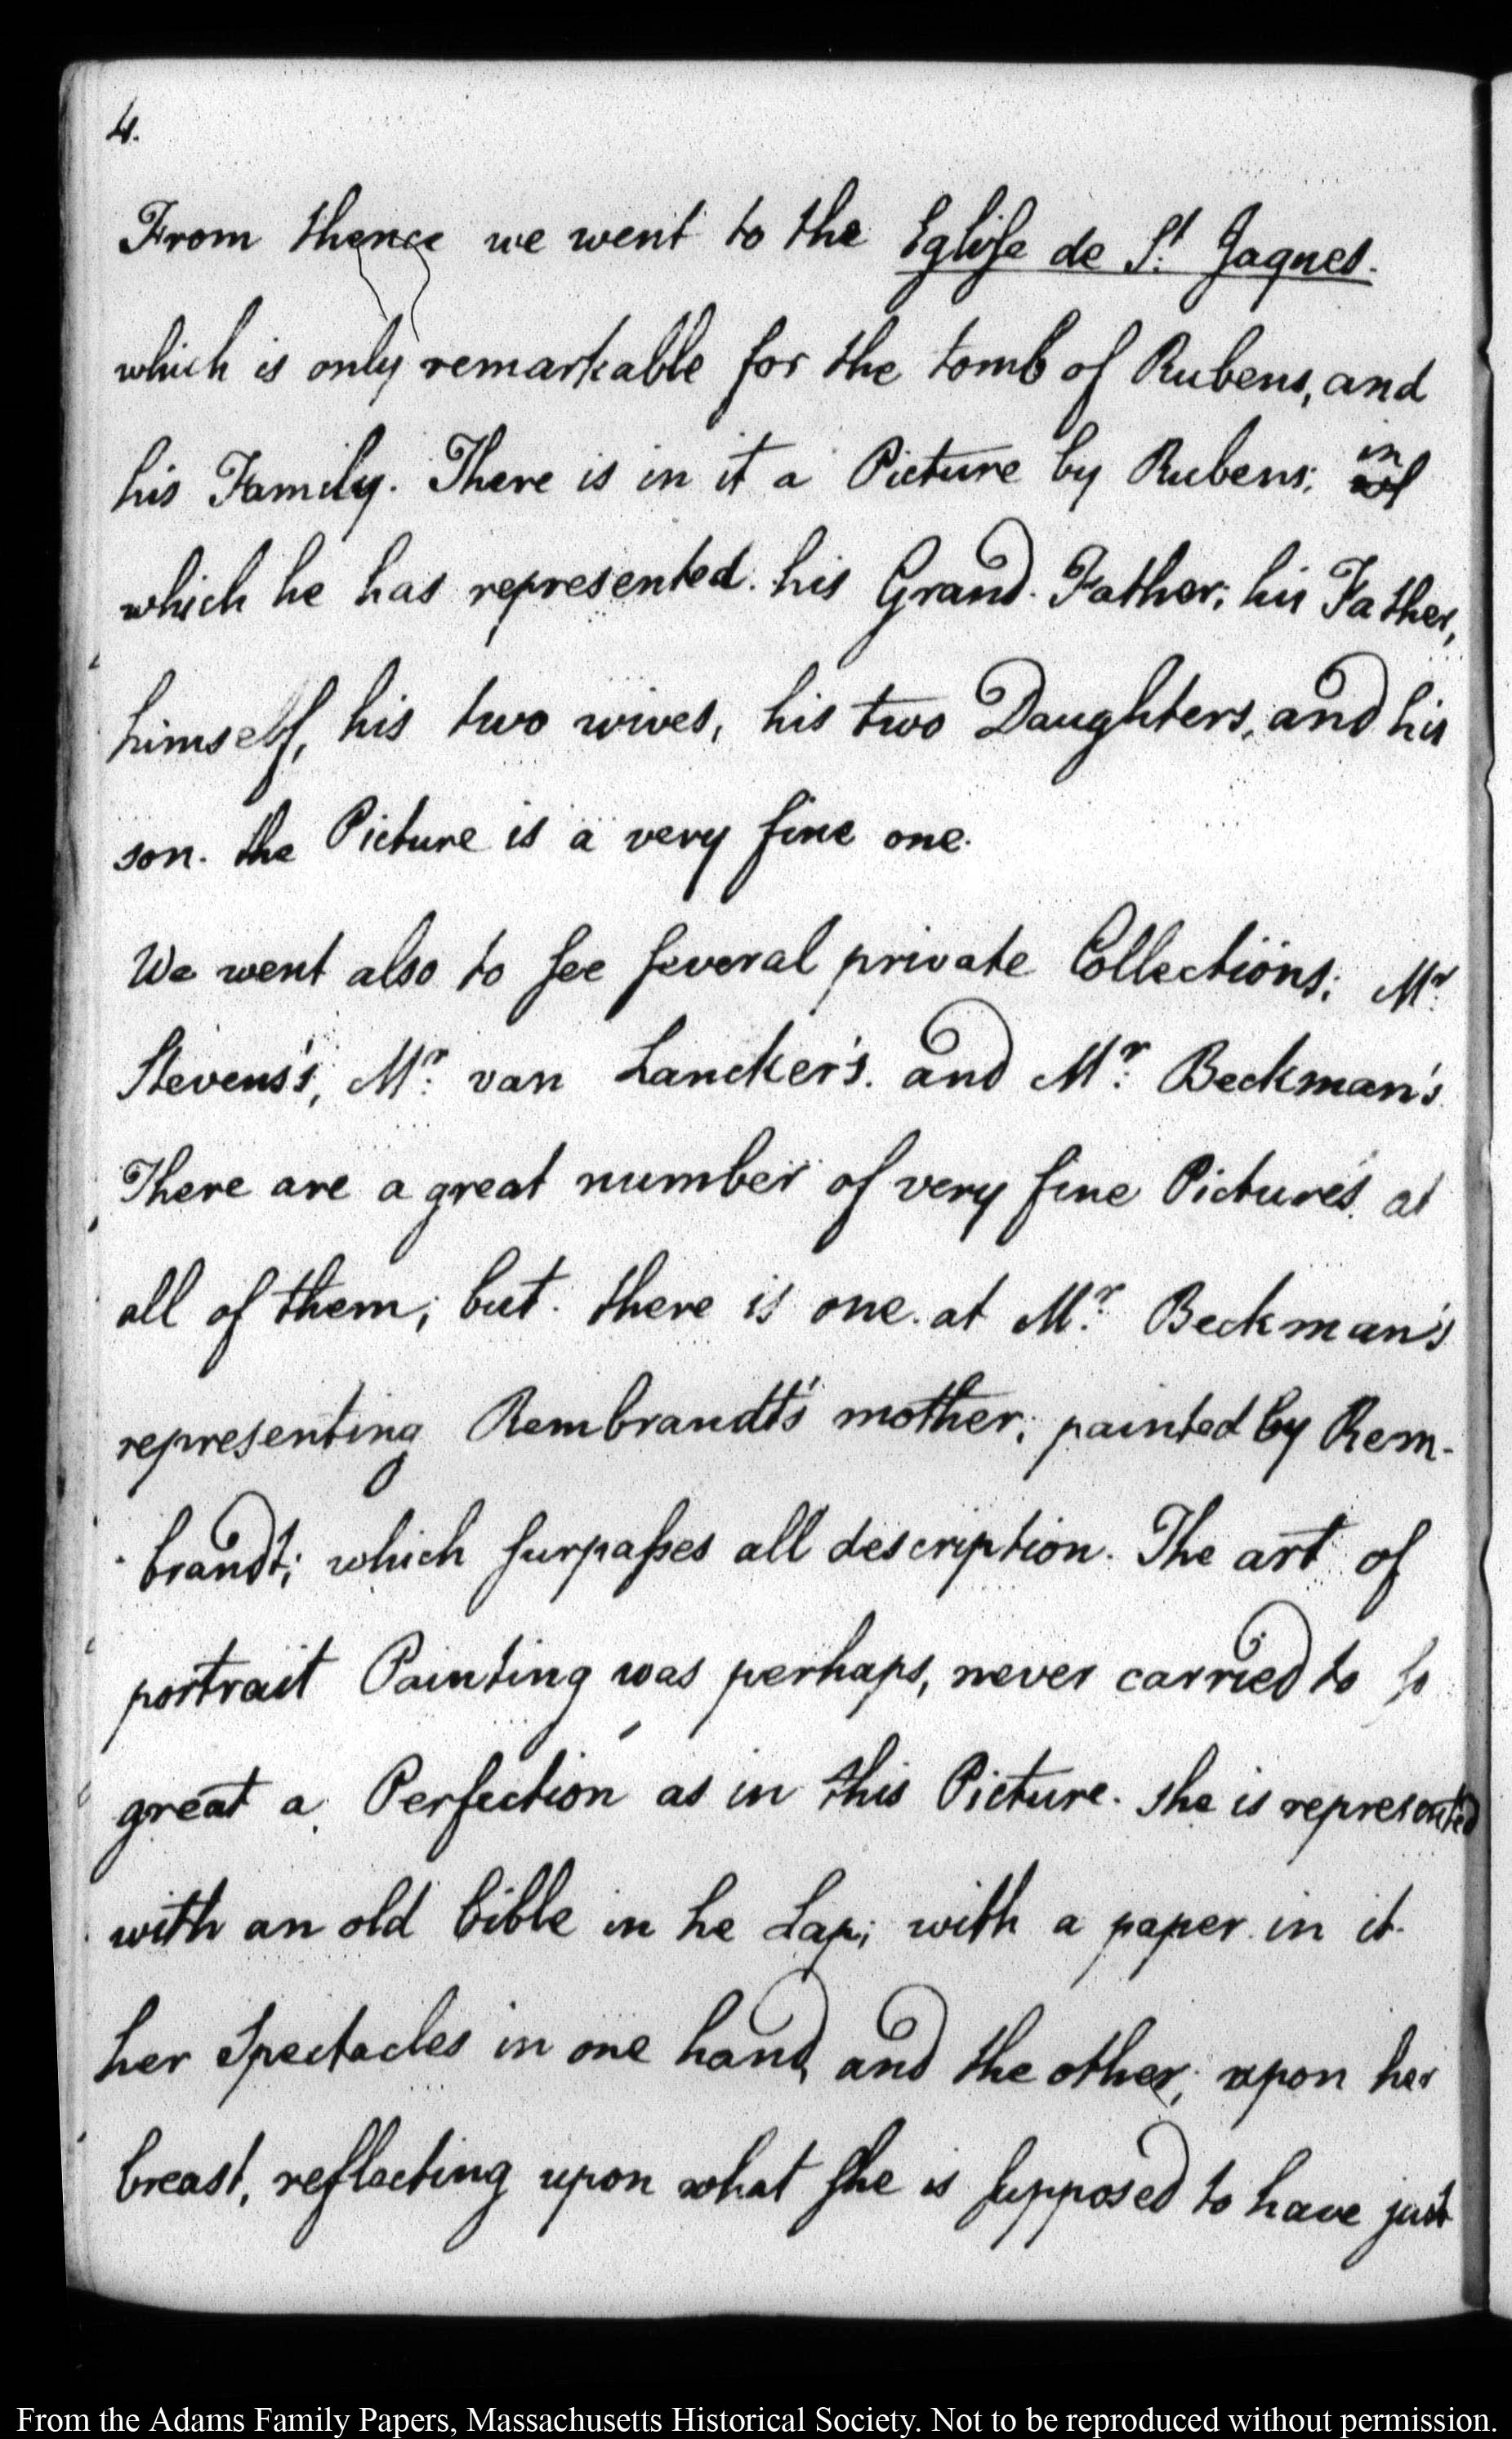 4.
From thence we went to the Eglise de St. Jaques.
which is only remarkable for the tomb of Rubens, and
his Family. There is in it a Picture by Rubens; in
which he has represented his Grand-Father; his Father,
himself, his two wives, his two Daughters, and his
son. the Picture is a very fine one.
We went also to see several private Collections; Mr.
Stevens's, Mr. van Lancker's. and Mr. Beckman's
There are a great number of very fine Pictures at
all of them; but there is one at Mr. Beckman's
representing Rembrandt's mother; painted by Rem-
brandt; which surpasses all description. The art of
portrait Painting was perhaps, never carried to so
great a Perfection as in this Picture. she is represented
with an old bible in he Lap; with a paper in it
her Spectacles in one hand, and the other, upon her
breast, reflecting upon what she is supposed to have just
From the Adams Family Papers, Massachusetts Historical Society. Not to be reproduced without permission.